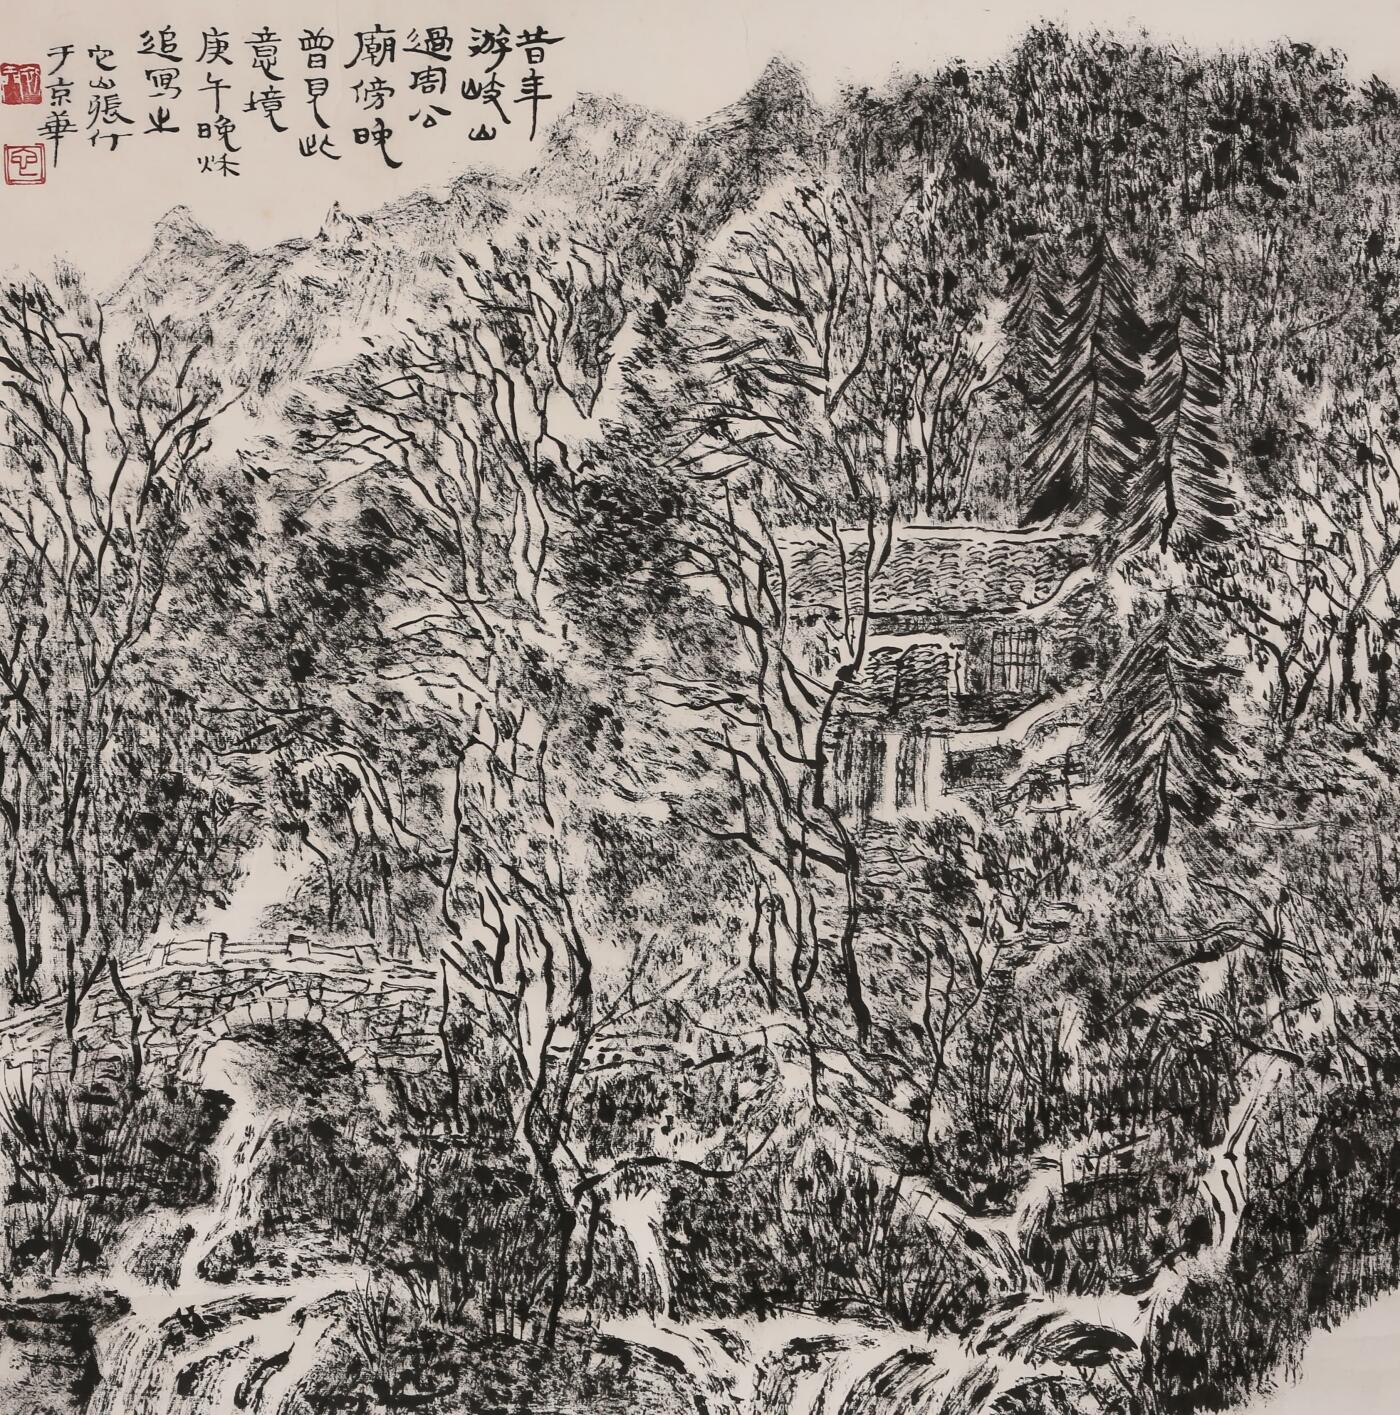 昔年
游岐山
過周公
廟傍晚
曾見此
意境
庚午晚秌
追寫之
它山張仃
于京華